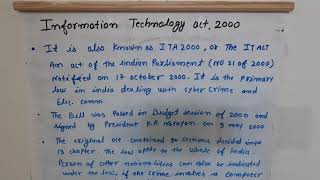 Information Technology act, 2000
• It is also known as ITA 2000, or the IT ACT
An act of the Indian Parliament (NO 21 of 2000)
Notified on 17 october 2000. It is the Primary
law in india dealing with cyber Crime and
Elec. comm.
• The Bill was passed in Budget session of 2000 and
signed by President K.R Narayan on 9 may 2000
• The original act contained 94 sections decided into
13 chapter. The law apply to the whole of India.
Person of other nationalities can also be indicated
under the law, if the crime involves a computer